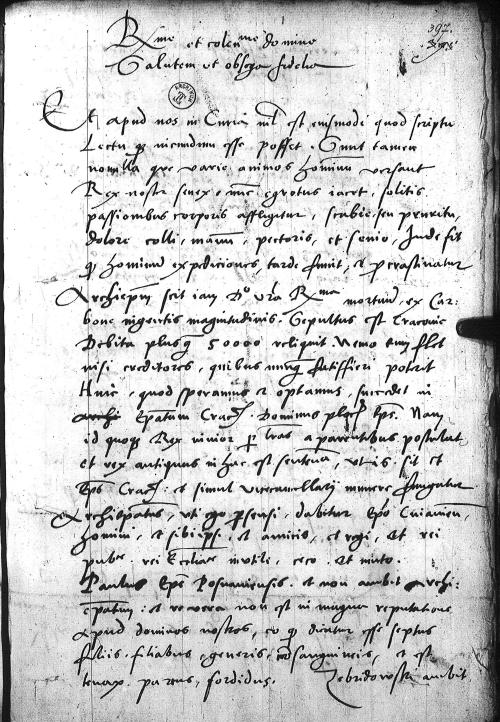 R_me et colen_me domine
Salutem et obseq_a fidelia
397
Et apud nos in Curia nil est eiusmodi quod scriptu
Lectu q iucundum esse posset. Sunt tamen
nonnulla que varie animos hominum versant
Rex noster senex nunc egrotus iacet, solitis
passionibus corporis affligitur, scabie seu pruritu,
dolore colli, manuum, pectoris, et senio, Inde fit
q hominum expediciones tarde fiunt, et procrastinatur
Archiep̄m scit iam D. v_ra R_ma mortuum, ex Car:
bone ingentis magnitudinis. Sepultus est Cracovie
Debita plusq 50000 reliquit Nemo eum flet
nisi creditores, quibus satisfieri poterit
Huic, quod speramus et optamus, succedet in
Ep̄atum Crac. Dominus Ep̄s. Nam
id quoq Rex iunior p l_ras a parentibus postulat
et rex antiquus in hac est sententia, ut is sit et
Ep̄s Crac. et simul vicecancellarij munere fungatur
Archiep̄atus, ut dabitur Ep̄o Cuiavien,
homini, et sibi ipsi, et amicis, et regi, et rei
pub_ce rei Eccl_iae inutili, ceco et muto.
Paulus Ep̄s Posnaniensis et non ambit Archi:
ep̄atum. et revera non est in magna reputatione
apud dominos nostros, eo q dicitur esse septus
filiis, filiabus, generis, consanguineis, et est
tenax, parcus, sordidus. Zebridovski ambit